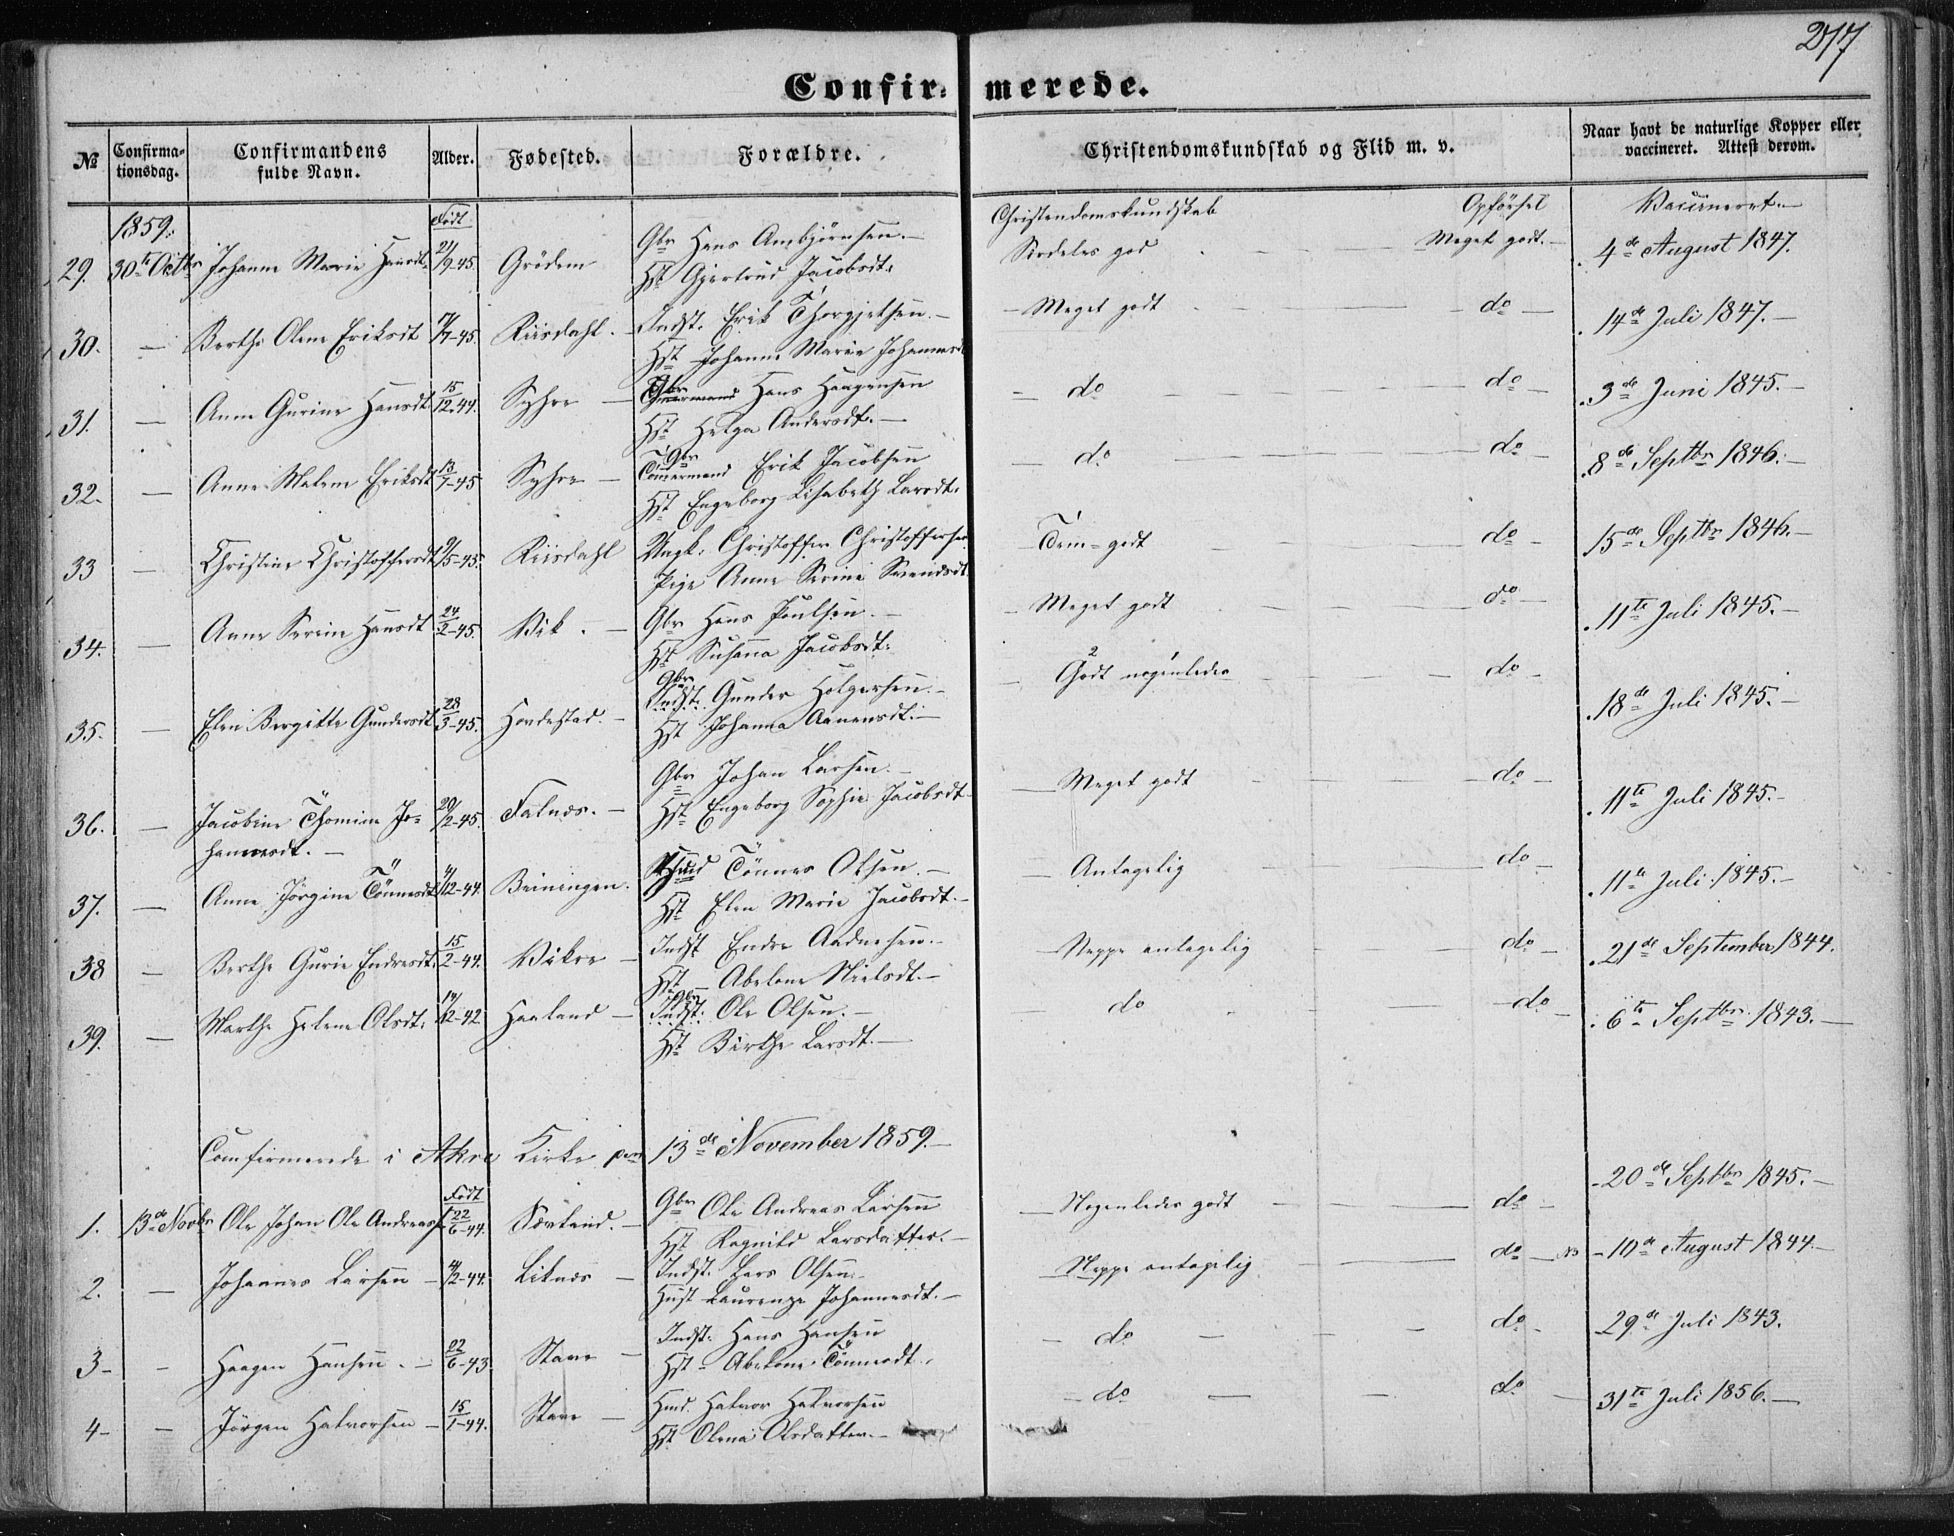 277
Confirmerede.
№ Confirmationsdag. Confirmandens fulde Navn. Alder. Fødested. Forældre. Christendomskundskab og Flid m. v. Naar havt de naturlige Kopper eller vaccineret. Attest derom.
1859. Født Christendomskundskab Opførsel Vaccineret.
29. 30te Octbr Johanne Marie Hansdt. 21/9-45. Grødem Gbr Hans Ambjørnsen. Hst Gjertrud Jacobsdt. Særdeles god Meget godt. 4de August 1847.
30. — Berthe Olene Eriksdt /7-45. Riisdahl. Indst. Erik Thorgjelsen. Hst Johanne Marie Johannesdt Meget godt do 14de Juli 1847.
31. — Anne Gurine Hansdt 15/12-44. Syhre Gbr Hans Haagensen Hst Helga Andersdt. do do 3de Juni 1845.
32. — Anne Malene Eriksdt 13/7-45 Syhre Gbr Tømermand Erik Jacobsen Hst Engeborg Lisabeth Larsdt. do do 8de Septbr 1846.
33 — Christine Christoffersdt 9/5-45. Riisdahl Ungk. Christoffer Christoffersen Pige Anne Serine Svendsdt. Tem. godt do 15de Septbr 1846.
34. — Anne Serine Hansdt 24/2-45. Vik. Gbr Hans Poulsen. Hst Susanna Jacobsdt. Meget godt do 11te Juli 1845.
35. — Elen Bergitte Gundersdt 28/3-45. Hondestad. Gbr Indst. Gunder Holgersen. Hst Johanna Aanensdt. 2 Godt 1 nogenledes do 18de Juli 1845.
36. — Jacobine Thomine Johannesdt. 20/2-45. Falnæs. Gbr Johan Larsen. Hst Engeborg Sophie Jacobsdt Meget godt do 11te Juli 1845.
37. — Anne Jörgine Tönnesdt 4/12-44. Beiningen. Tönnes Olsen. Hst Elen Marie Jacobsdt. Antagelig do 11te Juli 1845.
38 — Berthe Gurie Endresdt. 15/2-44. Vikre Indst Endre Aadnesen. Hst Abelone Nielsdt. Neppe antagelig do 21de September 1844.
39. — Marthe Helene Olsdt. /12-42 Haaland Gbr Indst. Ole Olsen. Hst Birthe Larsdt. do do 6te Septbr 1843.
Comfirmerede i Akre Kirke den 13de November 1859.
Født
1. 13de Novbr Ole Johan Ole Andreas. 22/6-44. Sævland. Gbr Ole Andreas Larsen Hst Ragnild Larsdatter. Nogenledes godt do 20de Septbr 1845.
2. — Johannes Larsen 4/2-44. Liknæs Indst. Lars Olsen. Hust Laurenze Johannesdt. Neppe antagelig do 10de August 1844.
3 - Haagen Hansen. 22/6-43. Stave Indst. Hans Hansen Hst Abelone Tönnesdt. do do 29de Juli 1843.
4 - Jörgen Halvorsen 15/1-44. Stave Hmd. Halvor Halvorsen Hst Olena Olsdatter. do do 31te Juli 1856.